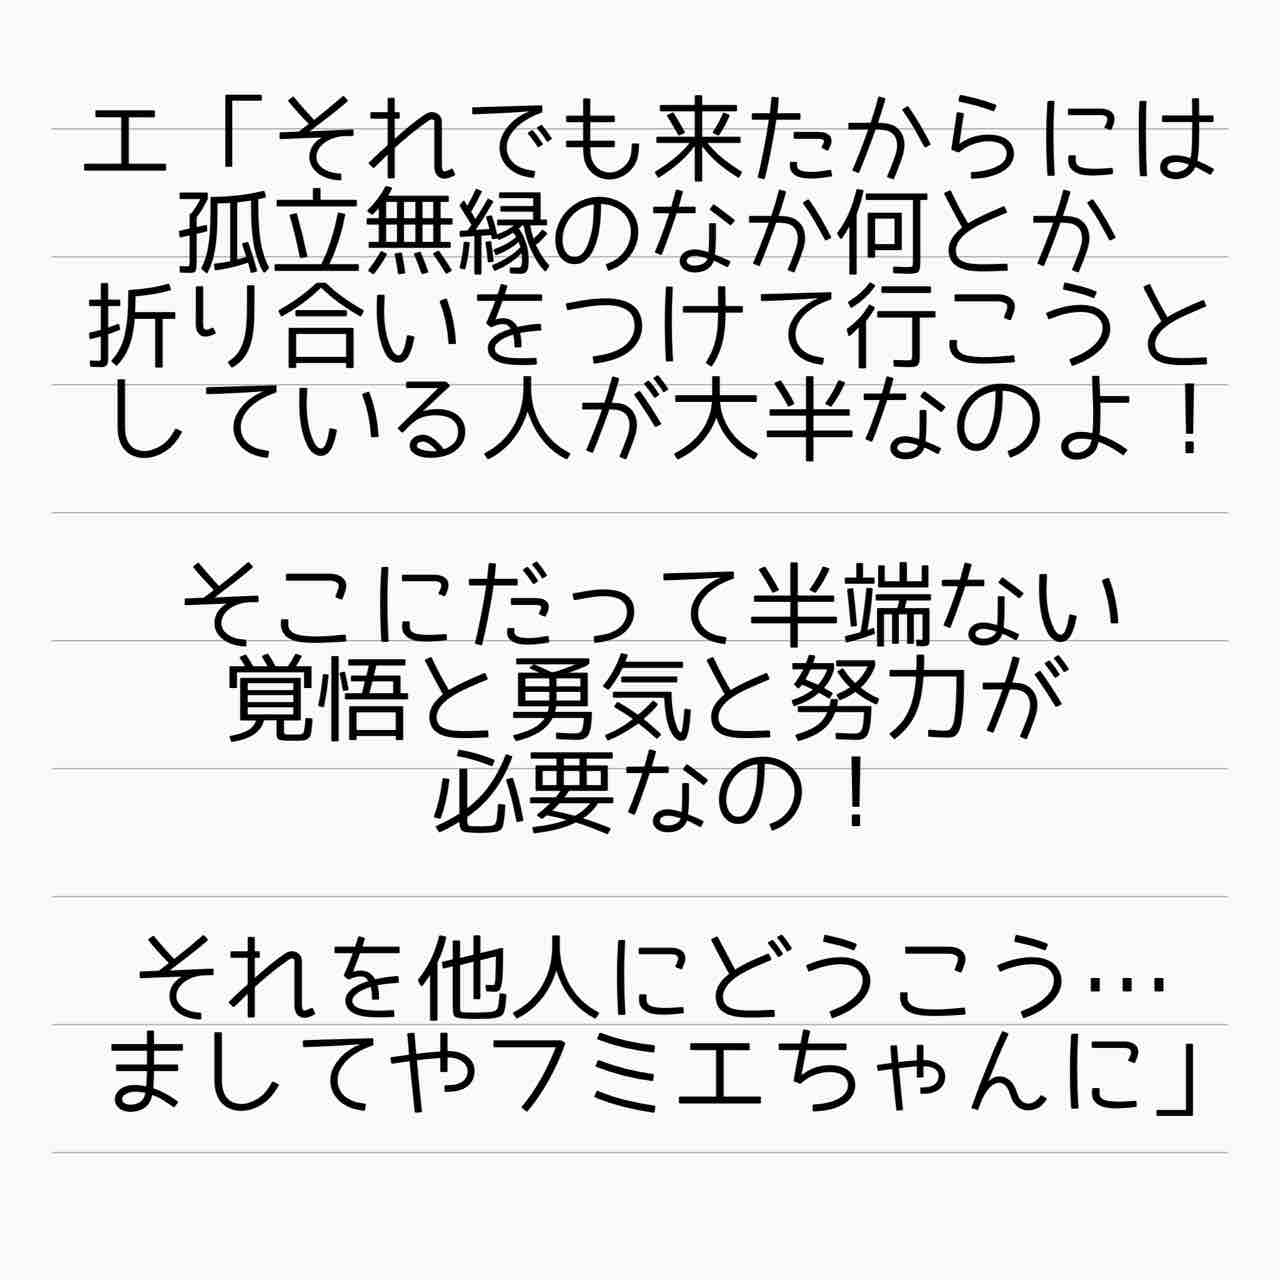 エ「それでも来たからには
孤立無縁のなか何とか
折り合いをつけて行こうと
している人が大半なのよ！
そこにだって半端ない
覚悟と勇気と努力が
必要なの！
それを他人にどうこう…
ましてやフミエちゃんに」